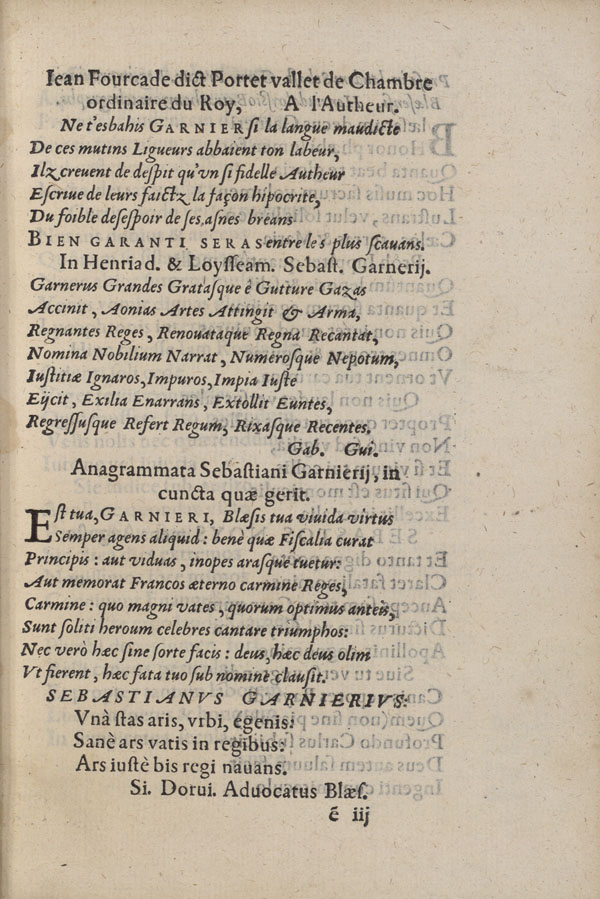 Iean Fourcade dict Portet vallet de Chambre
ordinaire du Roy, A l'Autheur.
Ne t'esbahis GARNIER si la langue maudicte
De ces mutins Ligueurs abbaient ton labeur,
Ilz creuent de despit qu'vn si fidelle Autheur
Escriue de leurs faictz la façon hipocrite,
Du foible desespoir de ses asnes breans
BIEN GARANTI SERAS entre les plus scauans.
In Henriad. & Loysseam. Sebast. Garnerij.
Garnerus Grandes Gratasque è Gutture Gazas
Accinit, Aonias Artes Attingit & Arma,
Regnantes Reges, Renouataque Regna Recantat,
Nomina Nobilium Narrat, Numerosque Nepotum,
Iustitiæ Ignaros, Impuros, Impia Iuste
Eijcit, Exilia Enarrans, Extollit Euntes,
Regressusque Refert Regum, Rixasque Recentes.
Gab. Gui.
Anagrammata Sebastiani Garnierij, in
cuncta quæ gerit.
Est tua, GARNIERI, Blæsis tua viuida virtus
Semper agens aliquid: benè quæ Fiscalia curat
Principis: aut viduas, inopes arasque tuetur:
Aut memorat Francos æterno carmine Reges,
Carmine: quo magni vates, quorum optimus anteis,
Sunt soliti heroum celebres cantare triumphos:
Nec verò hæc sine sorte facis: deus, hæc deus olim
Vt fierent, hæc fata tuo sub nomine clausit.
SEBASTIANVS GARNIERIVS:
Vnà stas aris, vrbi, égenis:
Sanè ars vatis in regibus:
Ars iustè bis regi nauans.
Si. Dorui. Aduocatus Blæs.
ẽ iij